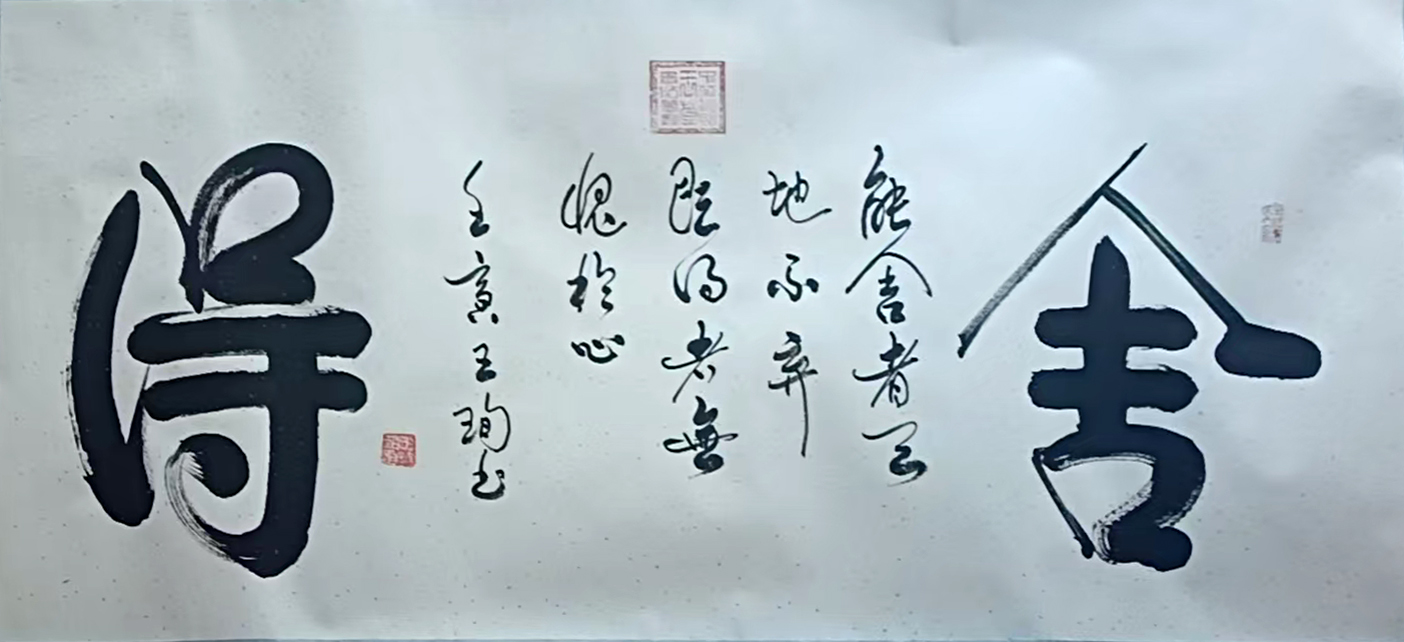 舍
能舍者天
地不弃
既得者無
愧於心
壬寅王珣书
得